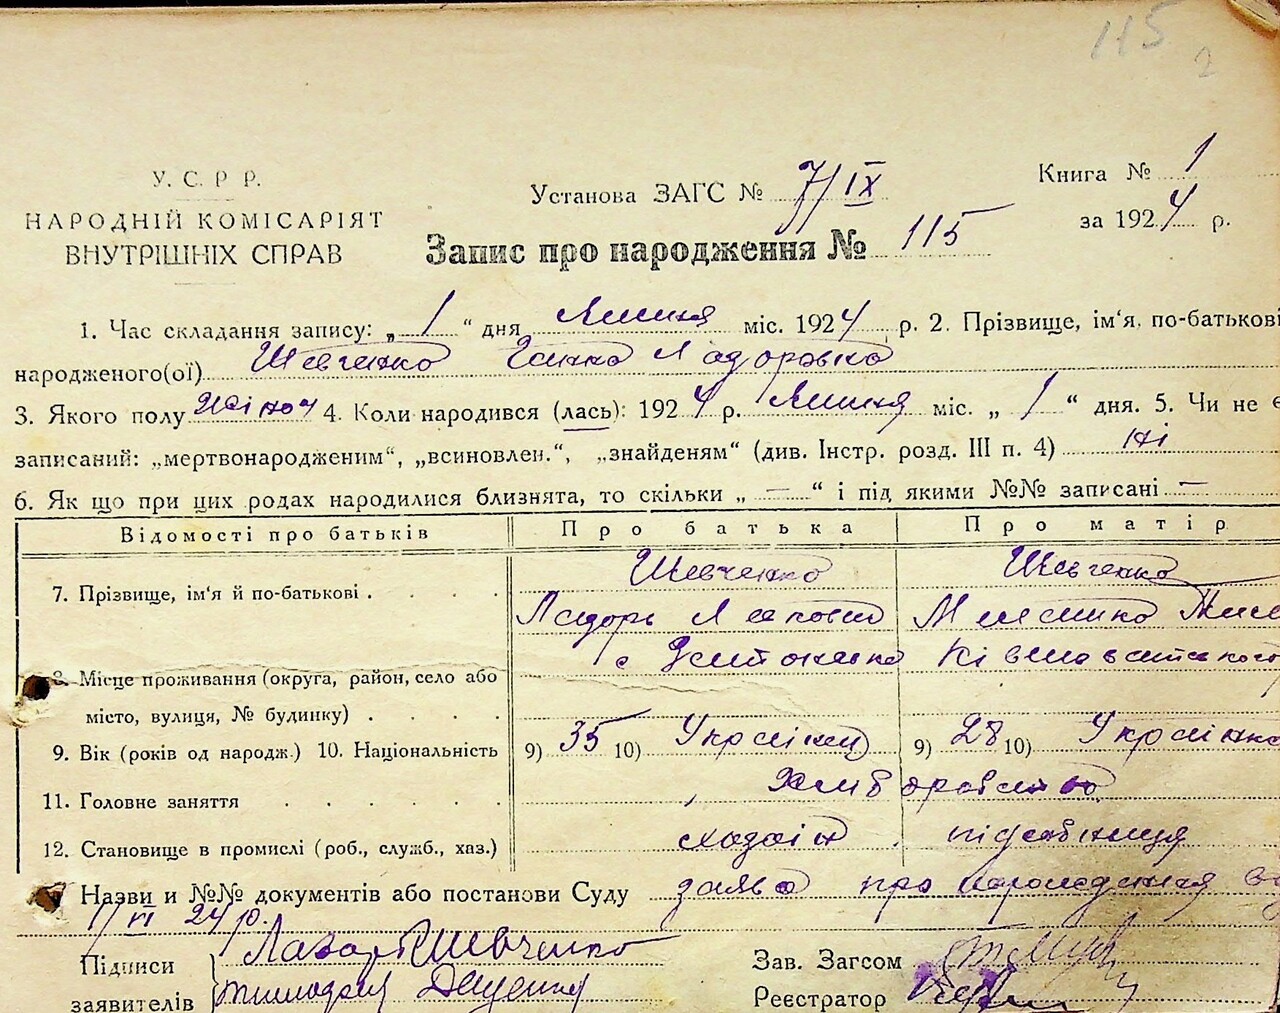 115
2
У. С. Р. Р.
НАРОДНІЙ КОМІСАРІЯТ
ВНУТРІШНІХ СПРАВ
Установа ЗАГС № 7/IX
Книга № 1
за 1924 р.
Запис про народження № 115
1. Час складання запису: „1“ дня Липня міс. 1924 р. 2. Прізвище, ім'я, по-батькові
народженого(ої) Шевченко Ганна
3. Якого полу жіноч 4. Коли народився (лась): 1924 р. Липня міс. „1“ дня. 5. Чи не є
записаний: „мертвонародженим“, „всиновлен.“, „знайденям“ (див. Інстр. розд. III п. 4) ні
6. Як що при цих родах народилися близнята, то скільки „—“ і під якими №№ записані —
Відомості про батьків Про батька Про матір
7. Прізвище, ім'я й по-батькові . . . . Шевченко Шевченко
с
8. Місце проживання (округа, район, село або
місто, вулиця, № будинку) . . . .
9. Вік (років од народж.) 10. Національність 9) 35 10) Українец 9) 28 10) Українка
11. Головне заняття . . . . . . Хліборобство
12. Становище в промислі (роб., служб., хаз.) хазяїн підсобниця
Назви и №№ документів або постанови Суду заява про народження
1/VI 24 р.
Підписи Лазарь Шевченко Зав. Загсом
заявителів Реєстратор